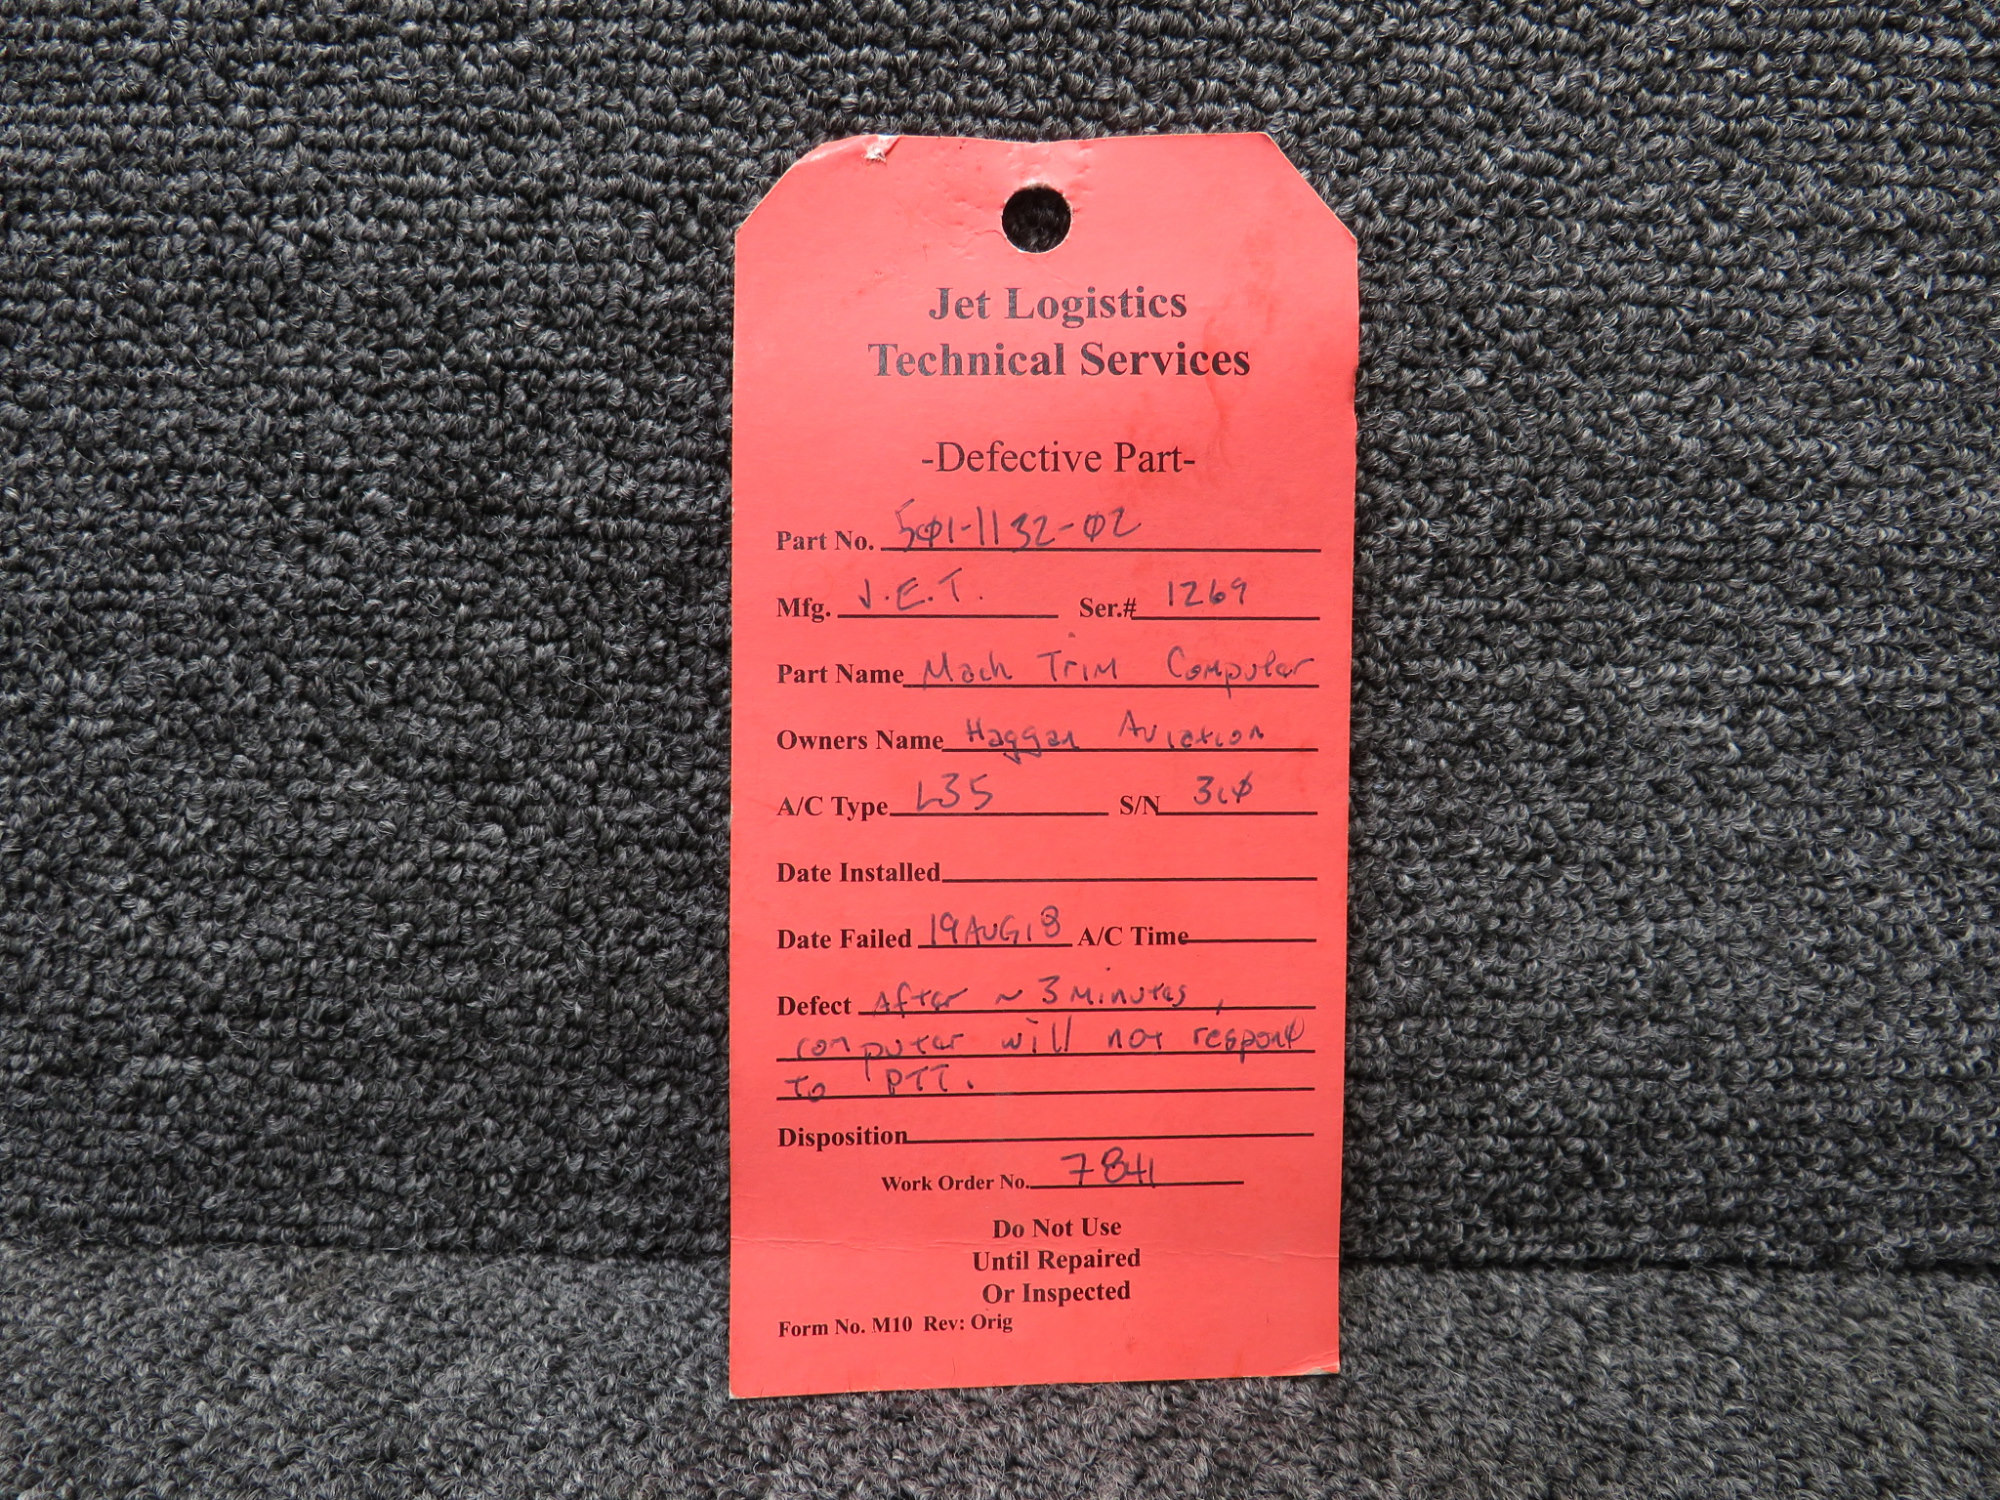 Jet Logistics
Technical Services
-Defective Part-
Part No. 501-1132-02
Mfg. J.E.T. Ser.# 1269
Part Name Mach Trim Computer
Owners Name Haggan Aviation
A/C Type L35 S/N
Date Installed
Date Failed 19AUG18 A/C Time
Defect After ~ 3 minutes,
computer will not respond
to PTT.
Disposition
Work Order No. 7841
Do Not Use
Until Repaired
Or Inspected
Form No. M10 Rev: Orig